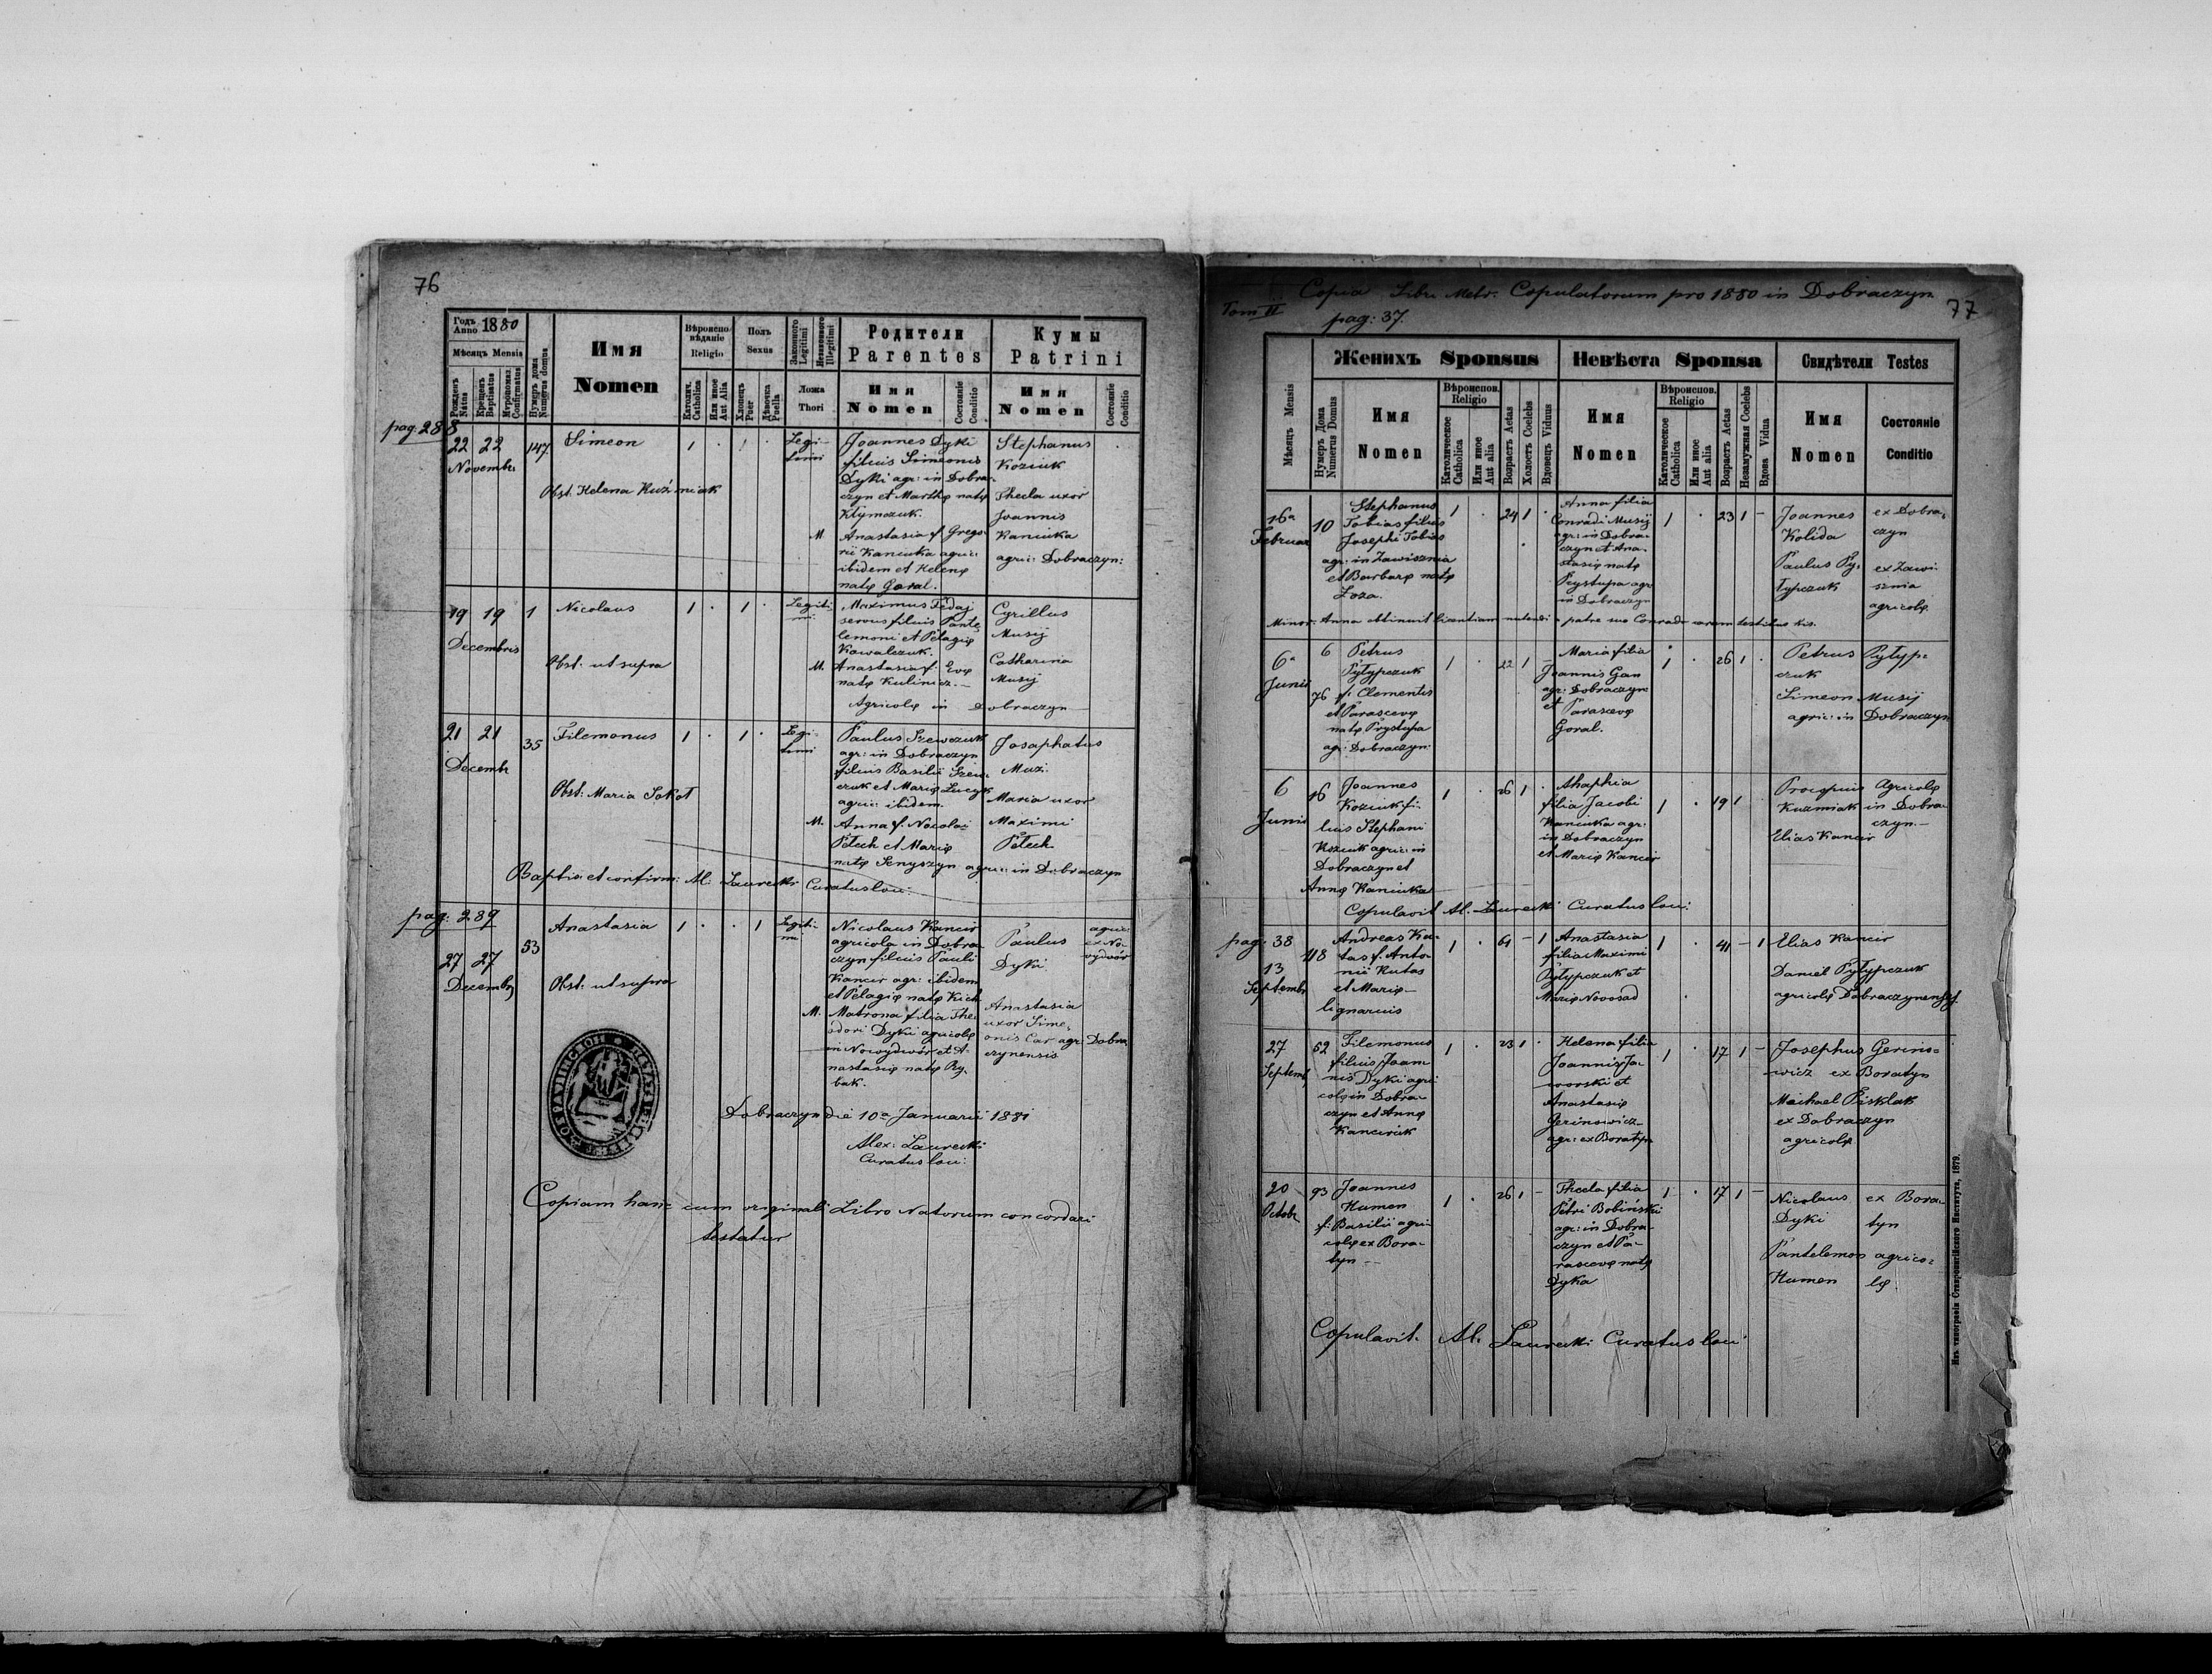 76
Годъ Anno 1880
Мѣсяцъ Mensis
Рожденъ Natus
Крещенъ Baptisatus
Мѵропомаз. Confirmatus
Нумеръ дома Numerus domus
Имя
Nomen
Вѣроисповѣданіе
Religio
Католич. Catholica
Или иное Aut Alia
Полъ
Sexus
Хлопецъ Puer
Дѣвочка Puella
Законного Legitimi
Незаконового Illegitimi
Ложа
Thori
Родители
Parentes
Имя
Nomen
Состояніе
Conditio
Кумы
Patrini
Имя
Nomen
Состояніе
Conditio
pag. 288
22 22 147 Simeon 1 . 1 . Legi-
Novembr timi
Obst. Helena Kuźmiak
Joannes Dyki
filius Simeonis
Dyki agr: in Dobra-
czyn et Marthę natę
Klymczuk.
M. Anastasia f. Grego-
rii Kaniuka agric:
ibidem et Helenę
natę Goral.
Stephanus
Koziuk
Thecla uxor
Joannis
Kaniuka
agric: Dobraczyn:
19 19 1 Nicolaus 1 . 1 . Legiti-
mi
Decembris
Obst. ut supra
Maximus Fedaj
servus filius Pante
lemoni et Pelagię
Kowalczuk.
M. Anastasia f. Evę
natę Kulinicz.—
Agricolę in Dobraczyn
Cyrillus
Musij
Catharina
Musij
21 21 35 Filemonus 1 . 1 . Legi-
timi
Decembr
Obst: Maria Sokoł
Paulus Szewczuk
agr: in Dobraczyn
filius Basilii Szew-
czuk et Marię Lucyk
agric: ibidem.
M. Anna f. Nocolai
Pełech et Marię
natę Senyszyn agric: in Dobraczyn
Josaphatus
Muzi.
Maria uxor
Maximi
Pełech
Baptis: et confirm: Al: Laurecki Curatus loci:
pag: 289
27 27 53 Anastasia 1 . . 1 Legiti-
mi
Decembr
Obst. ut supra
Nicolaus Kancir
agricola in Dobra
czyn filius Pauli
Kancir agr: ibidem
et Pelagię natę Kich
M. Matrona filia The-
odori Dyki agricolę
in Nowydwór et A-
nastasię natę Ry-
bak.
Paulus
Dyki
agric:
ex No-
wydwór
Anastasia
uxor Sime-
onis Car agr: Dobra
czynensis
Dobraczyn die 10a Januarii 1881
Alex: Laurecki
Curatus loci:
Copiam hanc cum originali Libro Natorum concordari
testatur
Copia Libri Metr. Copulatorum pro 1880 in Dobraczyn
Tom II pag: 37.
77
Мѣсяцъ Mensis
Нумеръ Дома Numerus Domus
Женихъ Sponsus
Имя
Nomen
Вѣроиспов.
Religio
Католическое Catholica
Или иное Aut alia
Возрастъ Aetas
Холостъ Coelebs
Вдовецъ Viduus
Невѣста Sponsa
Имя
Nomen
Вѣроиспов.
Religio
Католическое Catholica
Или иное Aut alia
Возрастъ Aetas
Незамужная Coelebs
Вдова Vidua
Свидѣтели Testes
Имя
Nomen
Состояніе
Conditio
16a
Februar
10
Stephanus
Tobias filius
Josephi Tobias
agr: in Zawisznia
et Barbarę natę
Łoza.
1 . 24 1 .
Anna filia
Conradi Musij
agr: in Dobra-
czyn et Ana-
stasię natę
Prystupa agr
in Dobraczyn
1 . 23 1 -
Joannes
Kolida
ex Dobra-
czyn
Paulus Py-
łypczuk
ex Zawi-
sznia
agricolę
Minor: Anna obtinuit licentiam nubendi a patre suo Conrado coram testibus his.
6a
Junii
6
76
Petrus
Pyłypczuk
f. Clementis
et Parascevę
natę Prystupa
agr: Dobraczyn
1 . 22 1 -
Maria filia
Joannis Gan
agr: Dobraczyn
et Parascevę
Goral.
1 . 26 1 .
Petrus Pyłyp-
czuk
Simeon Musij
agric: in Dobraczyn
6
Junii
16
Joannes
Koziuk fi-
lius Stephani
Koziuk agric: in
Dobraczyn et
Annę Kaniuka
1 . 26 1 .
Ahaphia
filia Jacobi
Kaniuka agr:
in Dobraczyn
et Marię Kancir
1 . 19 1
Procopius
Kuzmiak
Agricolę
in Dobra-
czyn.—
Elias Kancir
Copulavit Al. Laurecki Curatus loci:
pag: 38
13
Septembr
118
Andreas Ku-
tas f. Anto-
nii Kutas
et Marię —
lignarius
1 . 61 - 1
Anastasia
filia Maximi
Pyłypczuk et
Marię Novosad
1 . 41 - 1
Elias Kancir
Daniel Pyłypczuk
agricolę Dobraczynenses.
27
Septemb
52
Filemonus
filius Joan-
nis Dyki agri
colę in Dobra-
czyn et Annę
1 . 23 1 .
Helena filia
Joannis Ja-
worski et
Anastasię
Gerinowicz—
agr: ex Boratyn
1 . 17 1 -
Josephus Gerino-
wicz ex Boratyn
Michael Pisklak
ex Dobraczyn
agricolę
20
Octobr
93
Joannes
Humen
f. Basilii agri-
colę ex Bora-
tyn —
1 . 26 1 -
Thecla filia
Petri Bobiński
agr: in Dobra-
czyn et Pa-
rascevę natę
Dyka
1 . 17 1 -
Nicolaus
Dyki
ex Bora-
tyn
Pantelemon
Humen
agrico-
lę
Copulavit. Al. Laurecki Curatus loci
Изъ типографіи Ставропигійского Института, 1879.